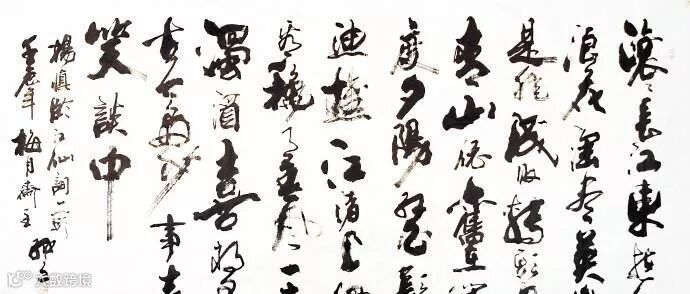 滚〻長江東逝
浪花淘盡英
是非成敗轉頭
青山依舊
度夕陽紅
漁樵江渚上
看秋月春風一
濁酒喜相
古今多少事
笑談中
楊慎臨江仙詞一首
壬辰年 梅月齋主
大数跨境